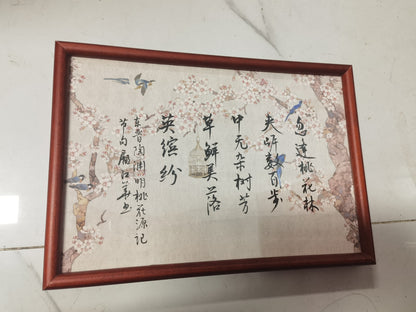 忽逢桃花林
夹岸数百步
中无杂树芳
草鲜美落
英缤纷
东晋陶渊明桃花源记
节句